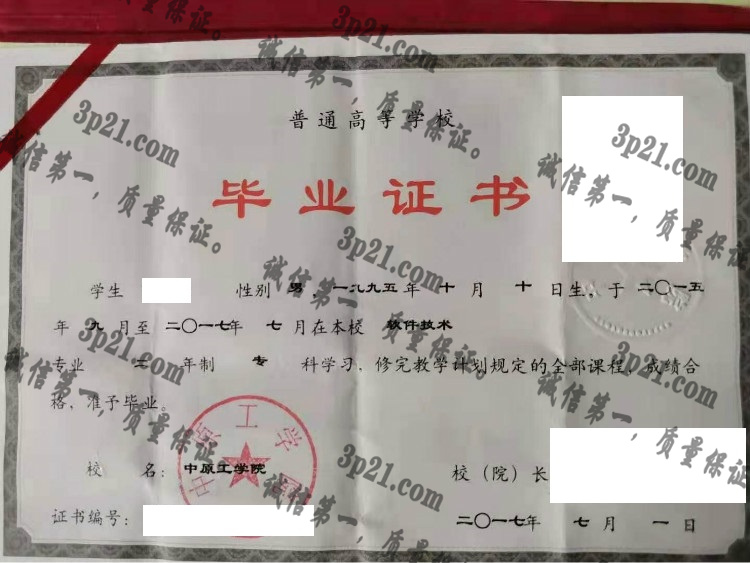 普通高等学校
毕业证书
学生 性别 男，一九九五年 十 月 十 日生，于 二〇一五
年 九 月至 二〇一七年 七 月在本校 软件技术
专业 二 年制 专 科学习，修完教学计划规定的全部课程，成绩合
格，准予毕业。
校 名：中原工学院 校（院）长
证书编号： 二〇一七年 七 月 一 日
中原工学院
3p21.com
诚信第一，质量保证。
3p21.com
诚信第一，质量保证。
3p21.com
诚信第一，质量保证。
3p21.com
诚信第一，质量保证。
3p21.com
诚信第一，质量保证。
3p21.com
诚信第一，质量保证。
3p21.com
诚信第一，质量保证。
3p21.com
诚信第一，质量保证。